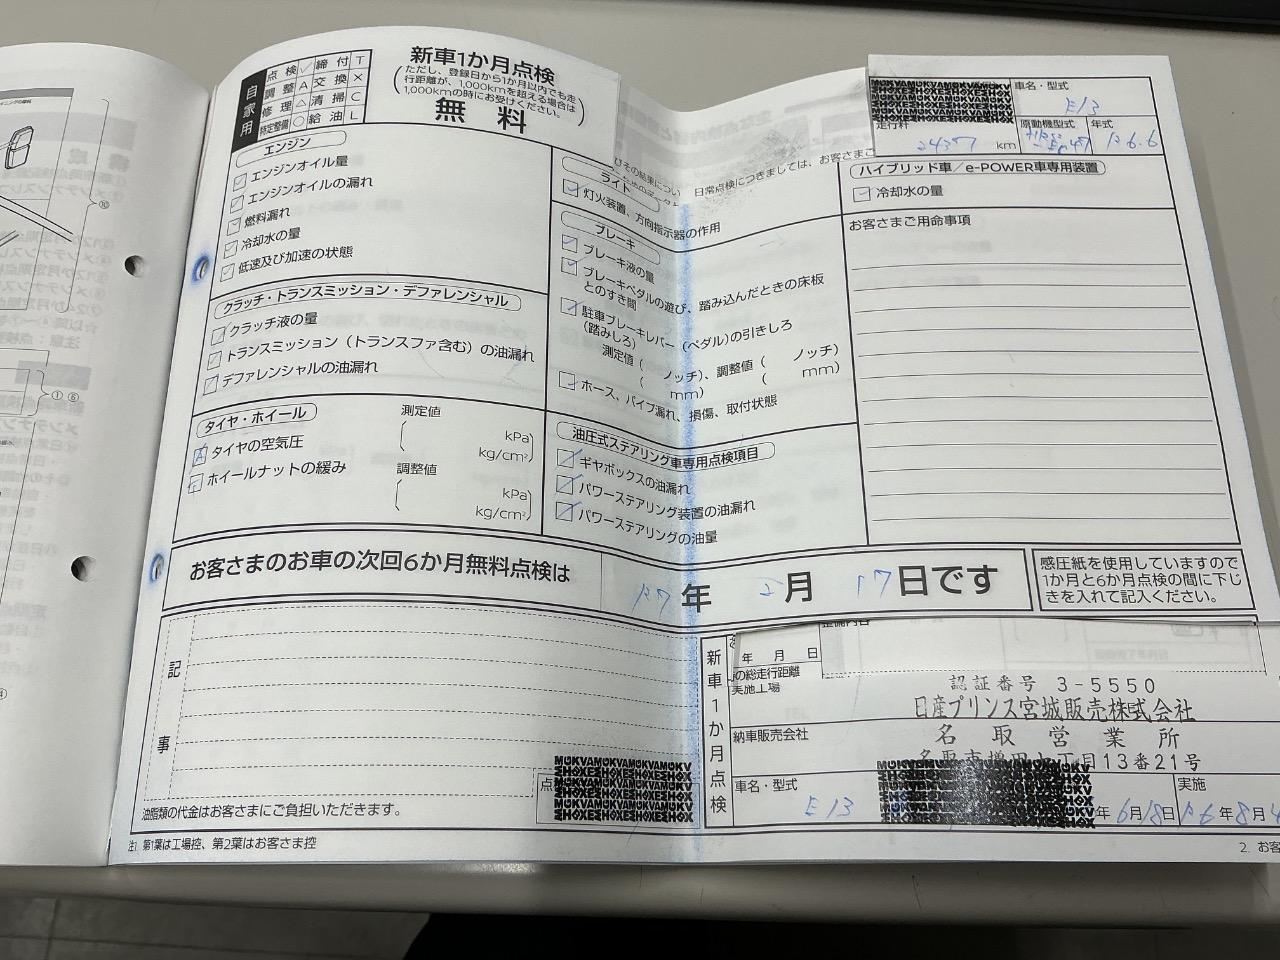 自家用
点検 ✓ 締付 T
調整 A 交換 ×
修理 △ 清掃 C
特定整備 ○ 給油 L
新車1か月点検
(ただし、登録日から1か月以内でも走
行距離が、1,000kmを超える場合は
1,000kmの時にお受けください。)
無料
エンジン
エンジンオイル量
エンジンオイルの漏れ
燃料漏れ
冷却水の量
低速及び加速の状態
クラッチ・トランスミッション・デファレンシャル
クラッチ液の量
トランスミッション(トランスファ含む)の油漏れ
デファレンシャルの油漏れ
タイヤ・ホイール
測定値
タイヤの空気圧
( kPa)
kg/cm²)
ホイールナットの緩み
調整値
( kPa)
kg/cm²)
びその結果につい
日常点検につきましては、お客さまご
ライト
灯火装置、方向指示器の作用
ブレーキ
ブレーキ液の量
ブレーキペダルの遊び、踏み込んだときの床板
とのすき間
駐車ブレーキレバー(ペダル)の引きしろ
(踏みしろ)
測定値( ノッチ)、調整値( ノッチ)
( mm) ( mm)
ホース、パイプ漏れ、損傷、取付状態
油圧式ステアリング車専用点検項目
ギヤボックスの油漏れ
パワーステアリング装置の油漏れ
パワーステアリングの油量
車名・型式
E13
走行粁
2437 km
原動機型式
年式
R6.6
ハイブリッド車/e-POWER車専用装置
冷却水の量
お客さまご用命事項
お客さまのお車の次回6か月無料点検は
R7年 2月 17日です
感圧紙を使用していますので
1か月と6か月点検の間に下じ
きを入れて記入ください。
記事
油脂類の代金はお客さまにご負担いただきます。
点
新車1か月点検
年 月 日
の総走行距離
実施工場
認証番号 3-5550
日産プリンス宮城販売株式会社
納車販売会社
名取営業所
名取市増田七丁目13番21号
車名・型式
E13
年6月18日
実施
R6年8月4
注1. 第1葉は工場控、第2葉はお客さま控
2. お客